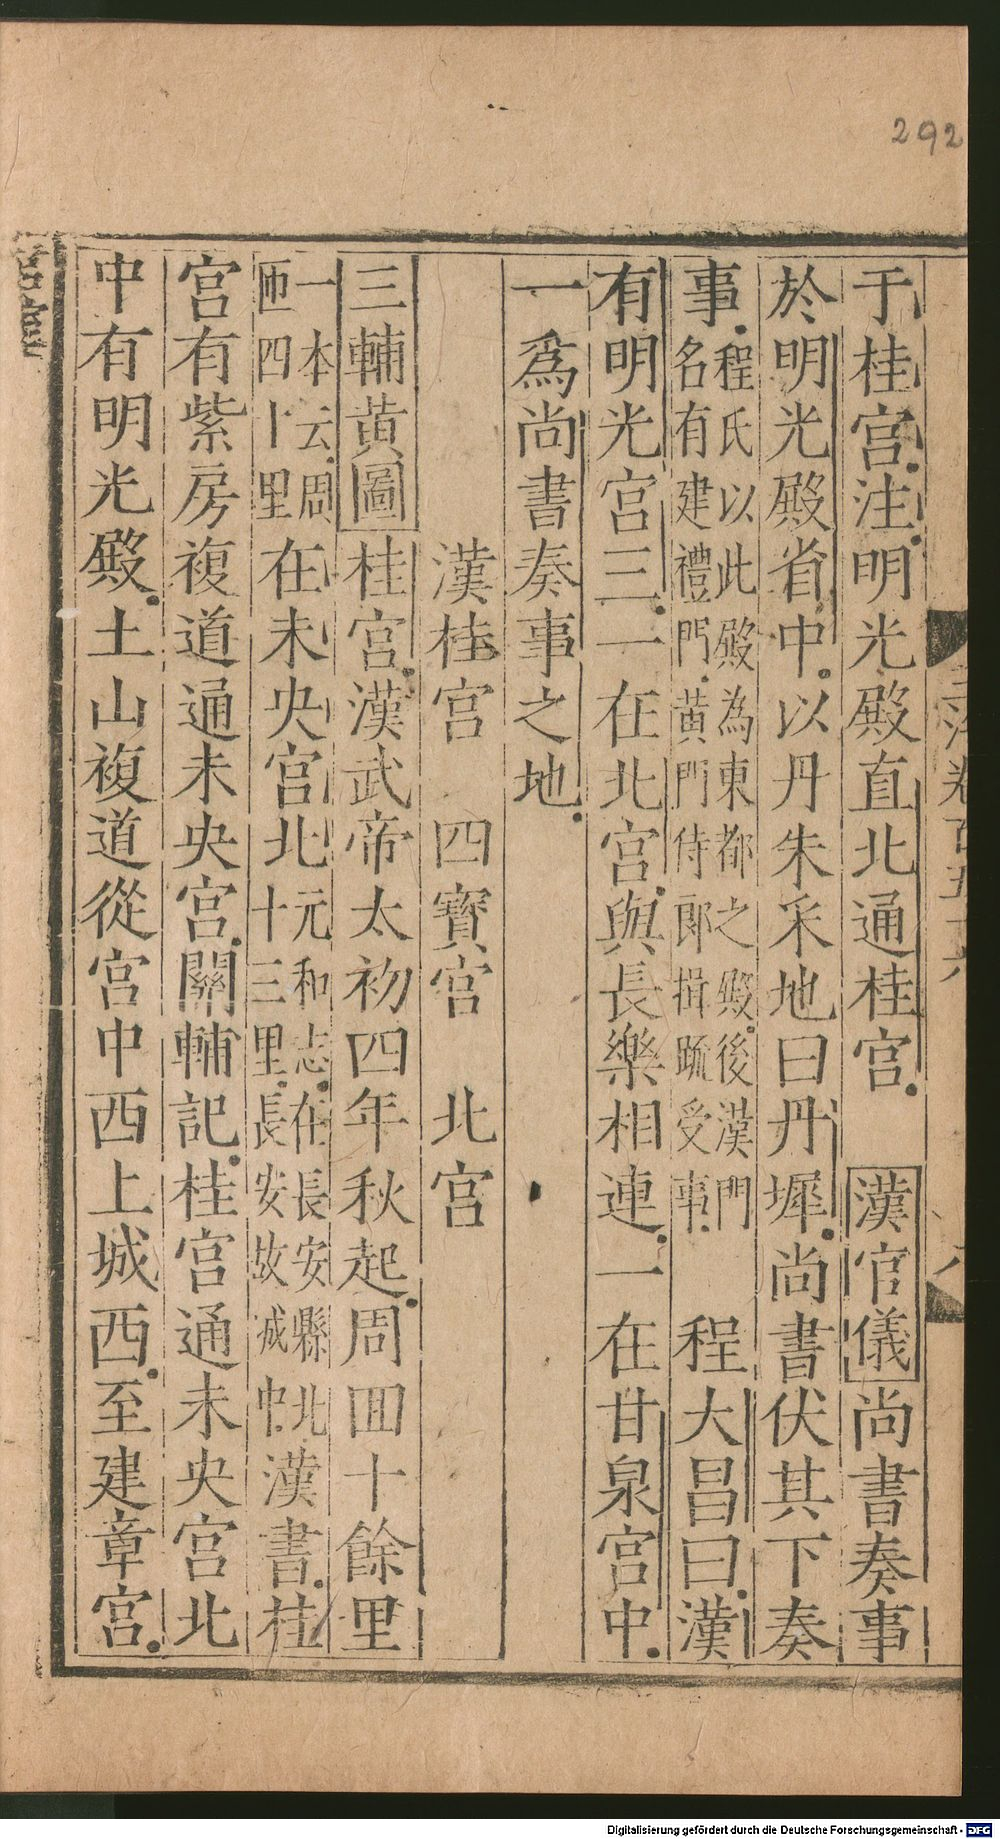 292
于桂宫注明光殿直北通桂宫 漢官儀尚書奏事
於明光殿省中以丹朱采地曰丹墀尚書伏其下奏
事程氏以此殿為東都之殿後漢門
名有建禮門黄門侍郎揖䟽受事 程大昌曰漢
有明光宫三一在北宫與長樂相連一在甘泉宫中
一爲尚書奏事之地
漢桂宫 四寳宫 北宫
三輔黄圖桂宫漢武帝太初四年秋起周囬十餘里
一本云周
匝四十里在未央宫北元和志在長安縣北
十三里長安故城中漢書桂
宫有紫房複道通未央宫關輔記桂宫通未央宫北
中有明光殿土山複道從宫中西上城西至建章宫
Digitalisierung gefördert durch die Deutsche Forschungsgemeinschaft - DFG